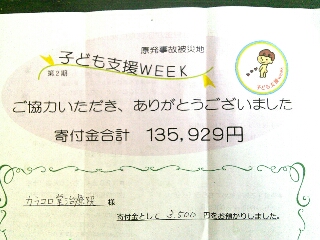 原発事故被災地
子ども支援WEEK
第2期
ご協力いただき、ありがとうございました
寄付金合計 135,929円
カラコロ堂治療院 様
寄付金として 3,500 円をお預かりしました。